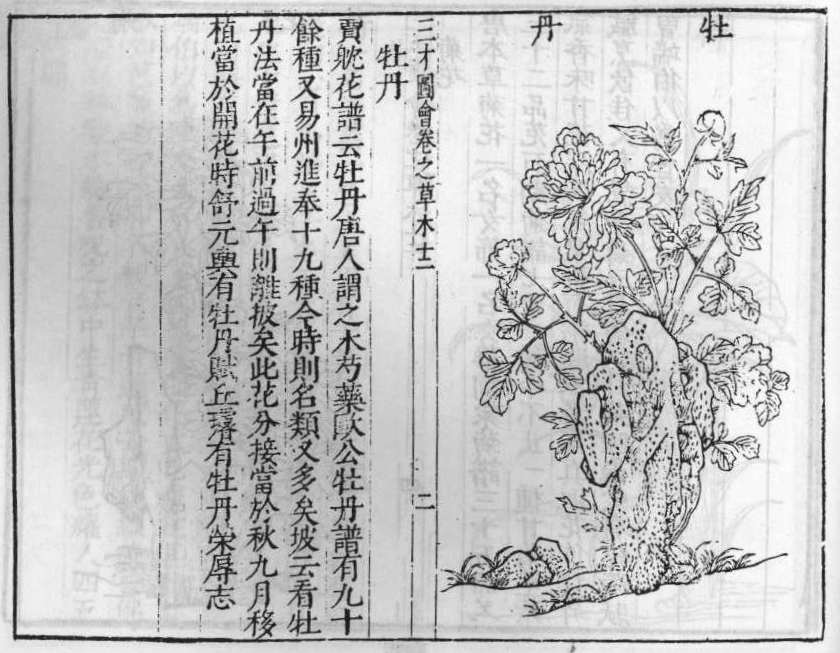 牡丹
三才圖會卷之草木十二 二
牡丹
賈躭花譜云牡丹唐人謂之木芍藥歐公牡丹譜有九十
餘種又易州進奉十九種今時則名類又多矣坡云看牡
丹法當在午前過午則離披矣此花分接當於秋九月移
植當於開花時舒元輿有牡丹賦丘璿有牡丹榮辱志